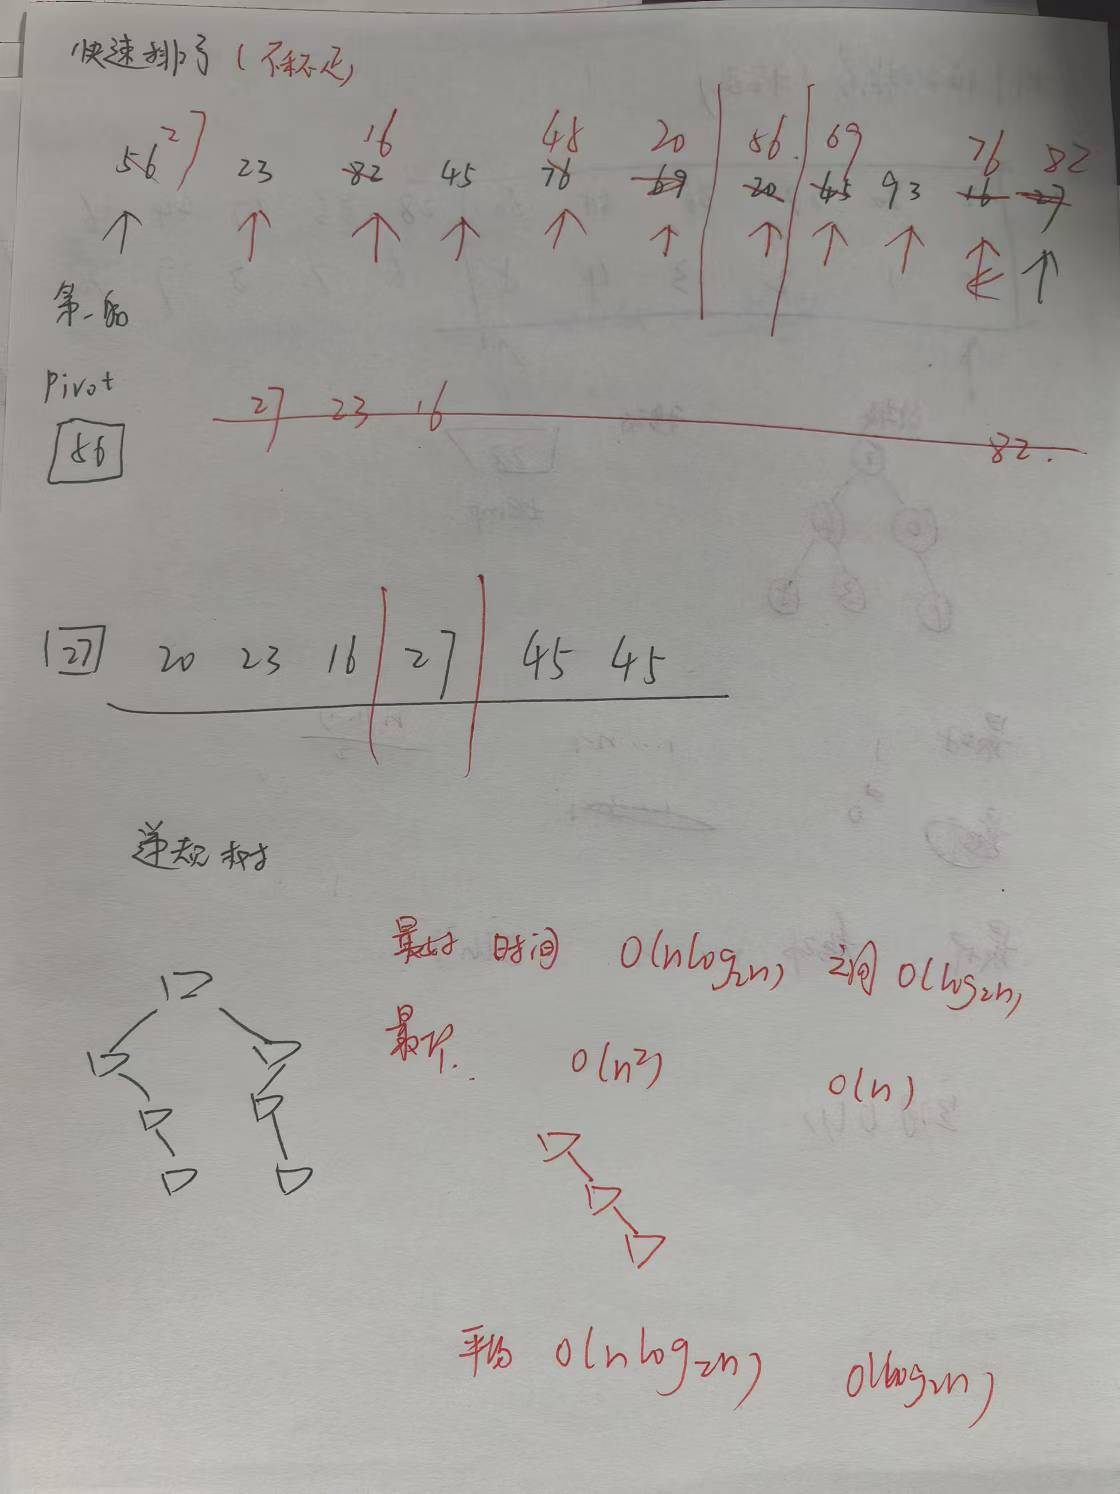 快速排序(不稳定)
27 16 48 20 56 69 76 82
56 23 82 45 76 69 20 45 93 16 27
第一趟
Pivot
56
27 23 16 82
27 20 23 16 27 45 45
递归树
最好 时间 O(nlog₂n) 空间 O(log₂n)
最坏 O(n²) O(n)
平均 O(nlog₂n) O(log₂n)